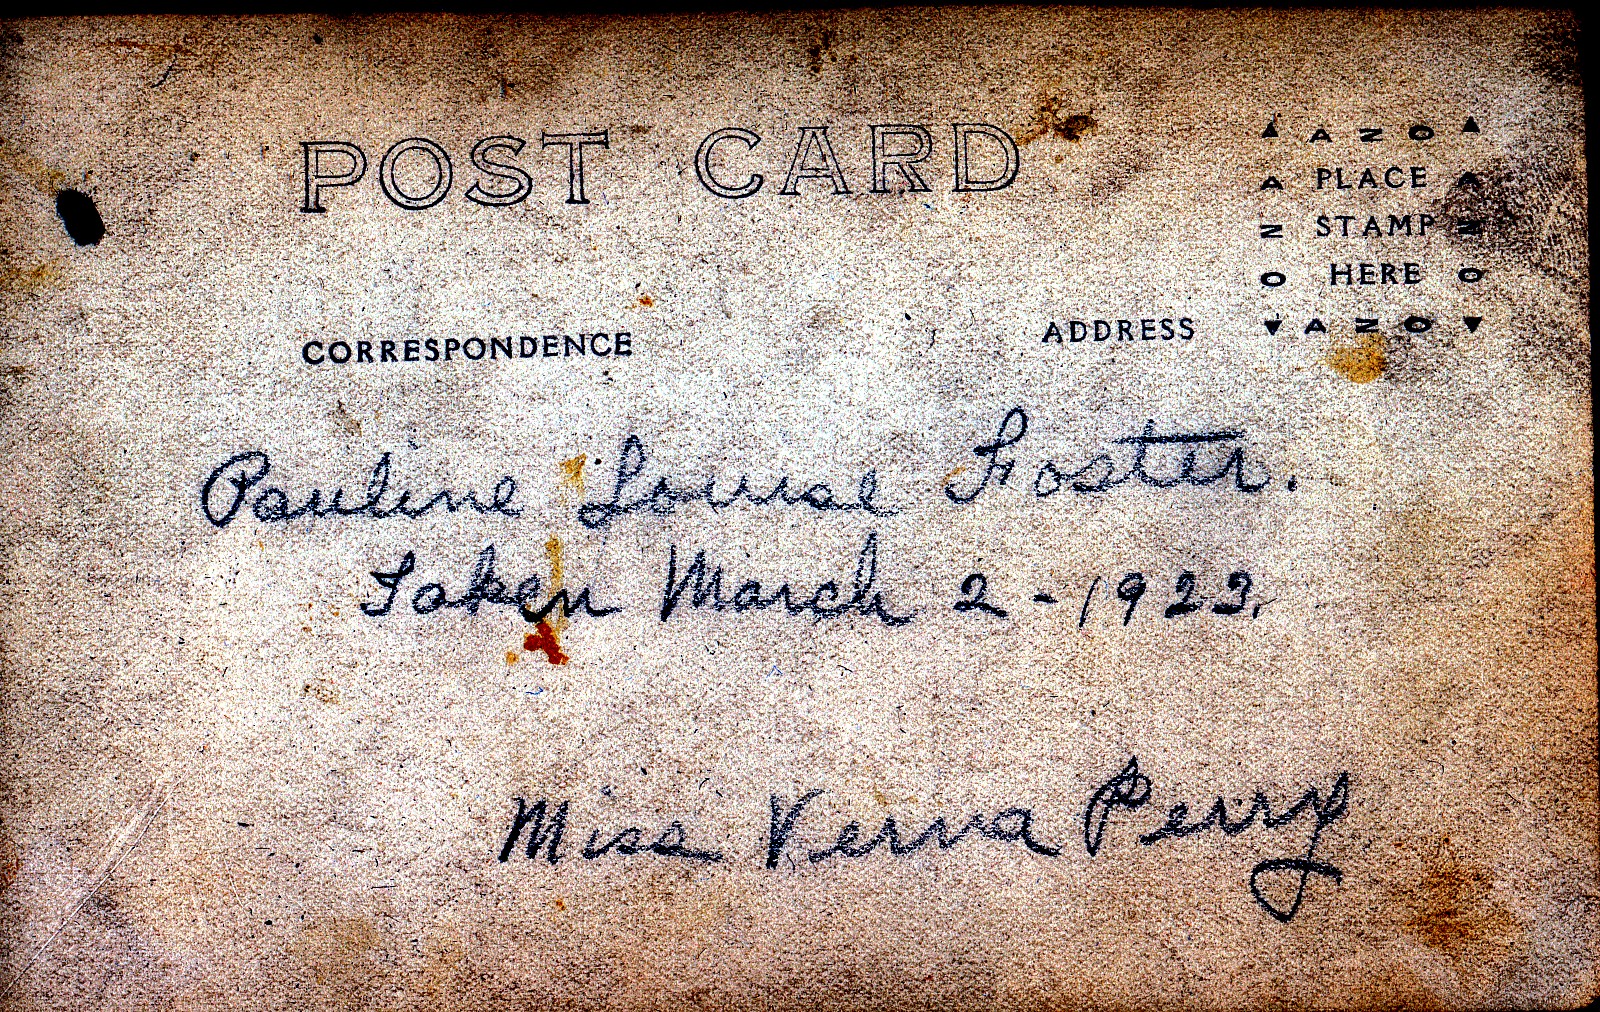 POST CARD
AZO
A PLACE A
N STAMP N
O HERE O
AZO
CORRESPONDENCE
ADDRESS
Pauline Louise Foster.
Taken March 2-1922.
Miss Verna Perry